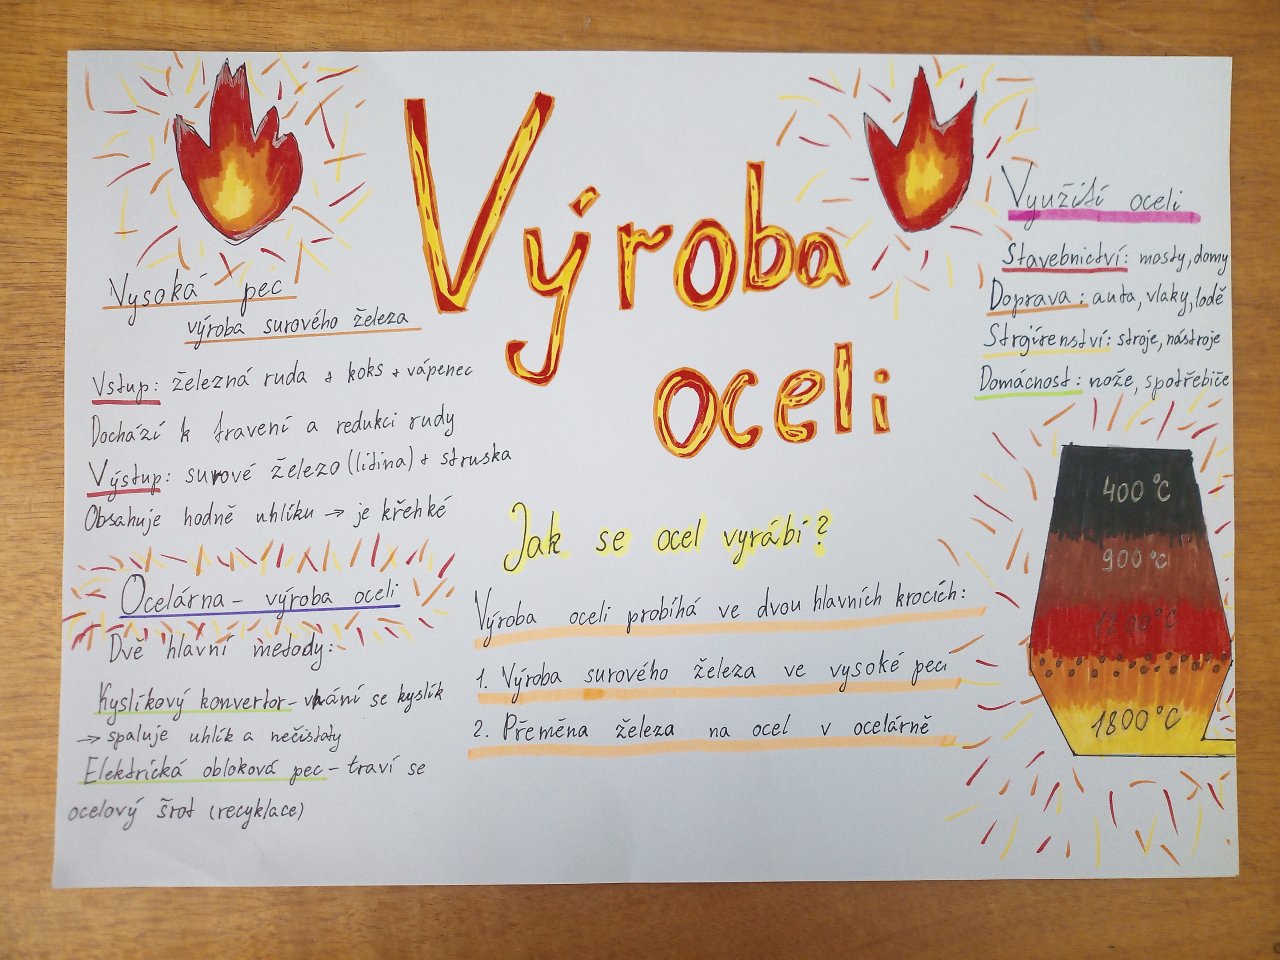 Výroba
oceli
Vysoká pec
výroba surového železa
Vstup: železná ruda + koks + vápenec
Dochází k travení a redukci rudy
Výstup: surové železo (litina) + struska
Obsahuje hodně uhlíku → je křehké
Ocelárna - výroba oceli
Dvě hlavní metody:
Kyslíkový konvertor - vhání se kyslík
→ spaluje uhlík a nečistoty
Elektrická obloková pec - traví se
ocelový šrot (recyklace)
Jak se ocel vyrábí?
Výroba oceli probíhá ve dvou hlavních krocích:
1. Výroba surového železa ve vysoké peci
2. Přeměna železa na ocel v ocelárně
Využití oceli
Stavebnictví: mosty, domy
Doprava: auta, vlaky, lodě
Strojírenství: stroje, nástroje
Domácnost: nože, spotřebiče
400°C
900°C
1200°C
1800°C